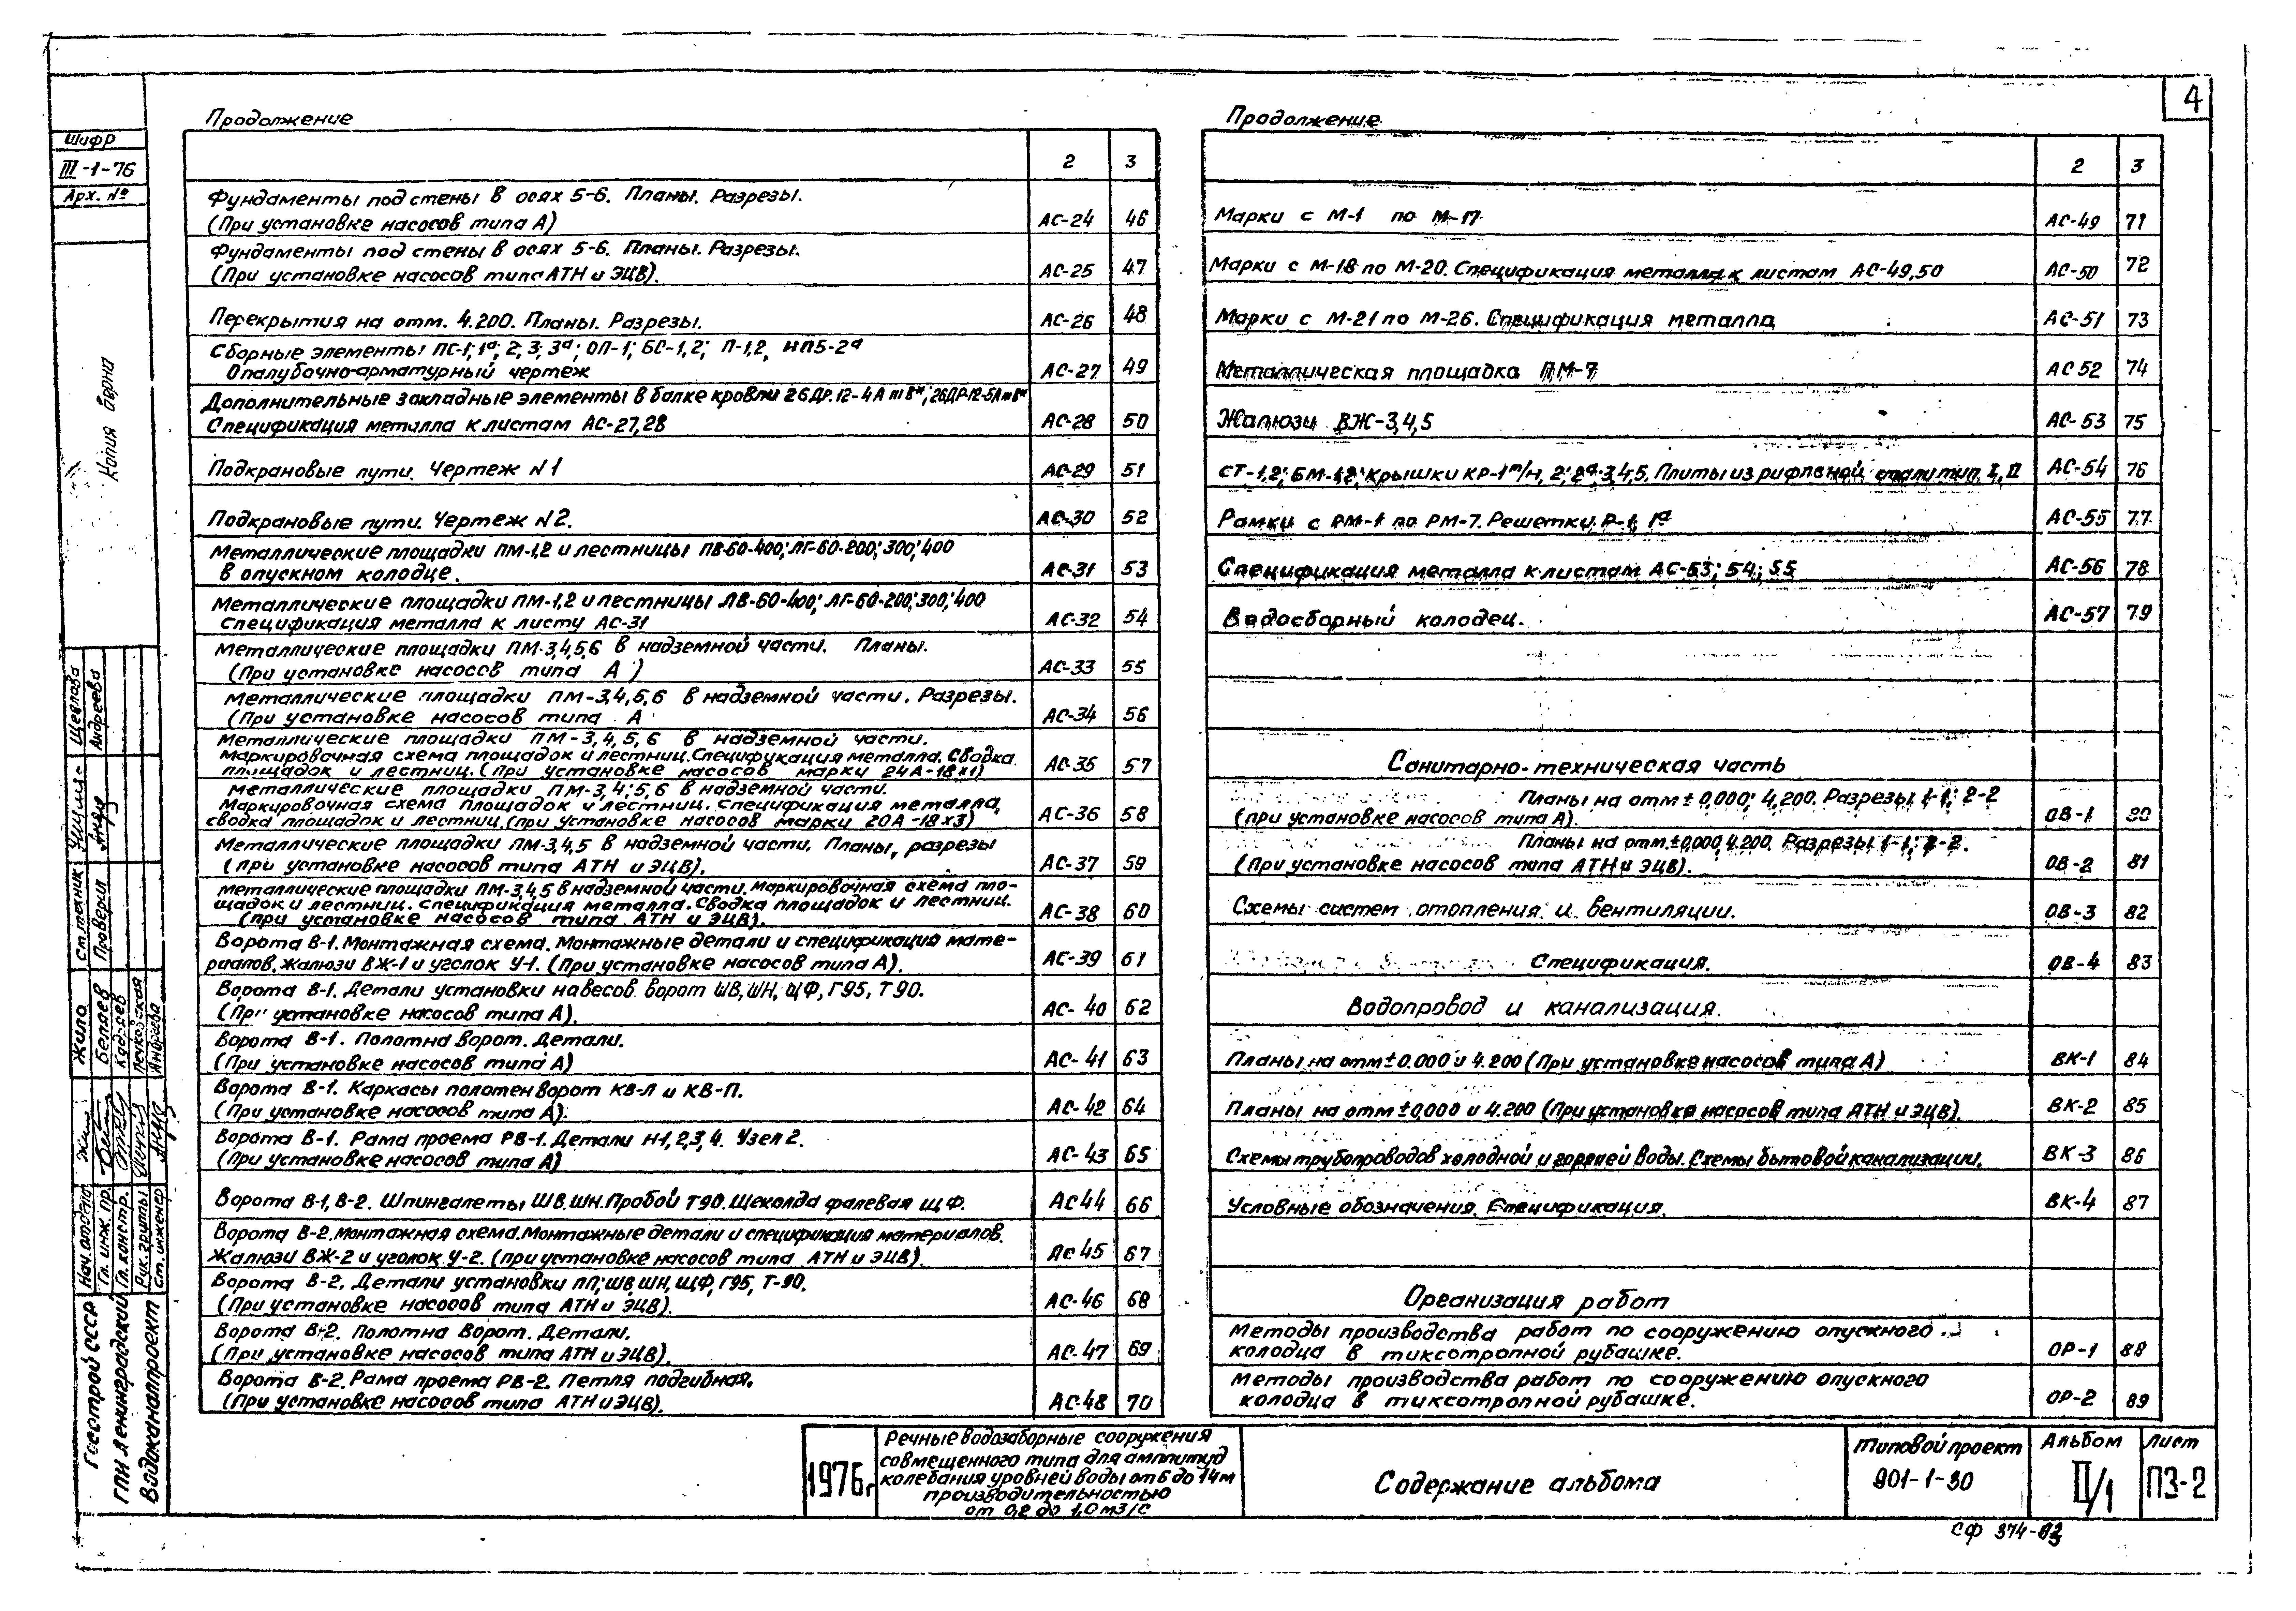 4
Шифр
III-1-76
Арх. №
Копия верна
Продолжение
2 3
Фундаменты под стены в осях 5-6. Планы. Разрезы.
(При установке насосов типа А) АС-24 46
Фундаменты под стены в осях 5-6. Планы. Разрезы.
(При установке насосов типа АТН и ЭЦВ). АС-25 47
Перекрытия на отм. 4.200. Планы. Разрезы. АС-26 48
Сборные элементы ПС-1; 1а; 2; 3; 3а; ОП-1; БС-1,2; П-1,2, ИП5-2а
Опалубочно-арматурный чертеж АС-27 49
Дополнительные закладные элементы в балке кровли
Спецификация металла к листам АС-27,28 АС-28 50
Подкрановые пути. Чертеж N1 АС-29 51
Подкрановые пути. Чертеж N2. АС-30 52
Металлические площадки ПМ-1,2 и лестницы ПВ-60-400; ЛГ-60-200; 300; 400
в опускном колодце. АС-31 53
Металлические площадки ПМ-1,2 и лестницы ЛВ-60-400; ЛГ-60-200; 300; 400
Спецификация металла к листу АС-31 АС-32 54
Металлические площадки ПМ-3,4,5,6 в надземной части. Планы.
(При установке насосов типа А) АС-33 55
Металлические площадки ПМ-3,4,5,6 в надземной части. Разрезы.
(При установке насосов типа А АС-34 56
Металлические площадки ПМ-3,4,5,6 в надземной части.
Маркировочная схема площадок и лестниц. Спецификация металла. Сводка
площадок и лестниц. (при установке насосов марки 24А-18х1) АС-35 57
Металлические площадки ПМ-3,4;5,6 в надземной части.
Маркировочная схема площадок и лестниц. спецификация металла,
сводка площадок и лестниц. (при установке насосов марки 20А-18х3) АС-36 58
Металлические площадки ПМ-3,4,5 в надземной части. Планы, разрезы
(при установке насосов типа АТН и ЭЦВ). АС-37 59
Металлические площадки ПМ-3,4,5 в надземной части. Маркировочная схема пло-
щадок и лестниц. спецификация металла. Сводка площадок и лестниц.
(при установке насосов типа АТН и ЭЦВ). АС-38 60
Ворота В-1. Монтажная схема. Монтажные детали и спецификация мате-
риалов. Жалюзи ВЖ-1 и уголок У-1. (При установке насосов типа А). АС-39 61
Ворота В-1. Детали установки навесов ворот ШВ, ШН, ЩФ, Г95, Т90.
(При установке насосов типа А). АС-40 62
Ворота В-1. Полотна ворот. Детали.
(При установке насосов типа А) АС-41 63
Ворота В-1. Каркасы полотен ворот КВ-Л и КВ-П.
(При установке насосов типа А). АС-42 64
Ворота В-1. Рама проема РВ-1. Детали Н-1,2,3,4. Узел 2.
(При установке насосов типа А) АС-43 65
Ворота В-1, В-2. Шпингалеты ШВ, ШН. Пробой Т90. Щеколда фалевая ЩФ. АС44 66
Ворота В-2. Монтажная схема. Монтажные детали и спецификация материалов.
Жалюзи ВЖ-2 и уголок У-2. (при установке насосов типа АТН и ЭЦВ). АС45 67
Ворота В-2. Детали установки ПП; ШВ, ШН, ЩФ, Г95, Т-90.
(При установке насосов типа АТН и ЭЦВ). АС-46 68
Ворота В-2. Полотна Ворот. Детали.
(При установке насосов типа АТН и ЭЦВ). АС-47 69
Ворота В-2. Рама проема РВ-2. Петля подгибная.
(При установке насосов типа АТН и ЭЦВ). АС-48 70
Продолжение
2 3
Марки с М-1 по М-17 АС-49 71
Марки с М-18 по М-20. Спецификация металла к листам АС-49,50 АС-50 72
Марки с М-21 по М-26. Спецификация металла АС-51 73
Металлическая площадка ПМ-7 АС 52 74
Жалюзи ВЖ-3,4,5 АС-53 75
СТ-1,2; БМ-1,2; Крышки КР-1т/н, 2; 2а; 3,4,5. Плиты из рифленой стали тип I, II АС-54 76
Рамки с РМ-1 по РМ-7. Решетки Р-1, 1а АС-55 77
Спецификация металла к листам АС-53; 54; 55 АС-56 78
Водосборный колодец. АС-57 79
Санитарно-техническая часть
Планы на отм ± 0,000; 4,200. Разрезы 1-1; 2-2
(при установке насосов типа А). ОВ-1 80
Планы на отм. ±0,000, 4.200. Разрезы 1-1; 2-2.
(При установке насосов типа АТН и ЭЦВ). ОВ-2 81
Схемы систем отопления и вентиляции. ОВ-3 82
Спецификация. ОВ-4 83
Водопровод и канализация.
Планы на отм ± 0.000 и 4.200 (При установке насосов типа А) ВК-1 84
Планы на отм ±0,000 и 4.200 (При установке насосов типа АТН и ЭЦВ). ВК-2 85
Схемы трубопроводов холодной и горячей воды. Схемы бытовой канализации. ВК-3 86
Условные обозначения. Спецификация. ВК-4 87
Организация работ
Методы производства работ по сооружению опускного
колодца в тиксотропной рубашке. ОР-1 88
Методы производства работ по сооружению опускного
колодца в тиксотропной рубашке. ОР-2 89
Госстрой СССР
ГПИ Ленинградский
Водоканалпроект
Нач. отдела Жило
Гл. инж. пр. Беляев
Гл. констр.
Рук. группы
Ст. инженер Андреева
Ст. техник Щеглова
Проверил Андреева
1976г
Речные водозаборные сооружения
совмещенного типа для амплитуд
колебания уровней воды от 6 до 14м
производительностью
от 0,2 до 1,0 м3/с
Содержание альбома
Типовой проект
901-1-30
Альбом
II/1
Лист
ПЗ-2
СФ 374-03